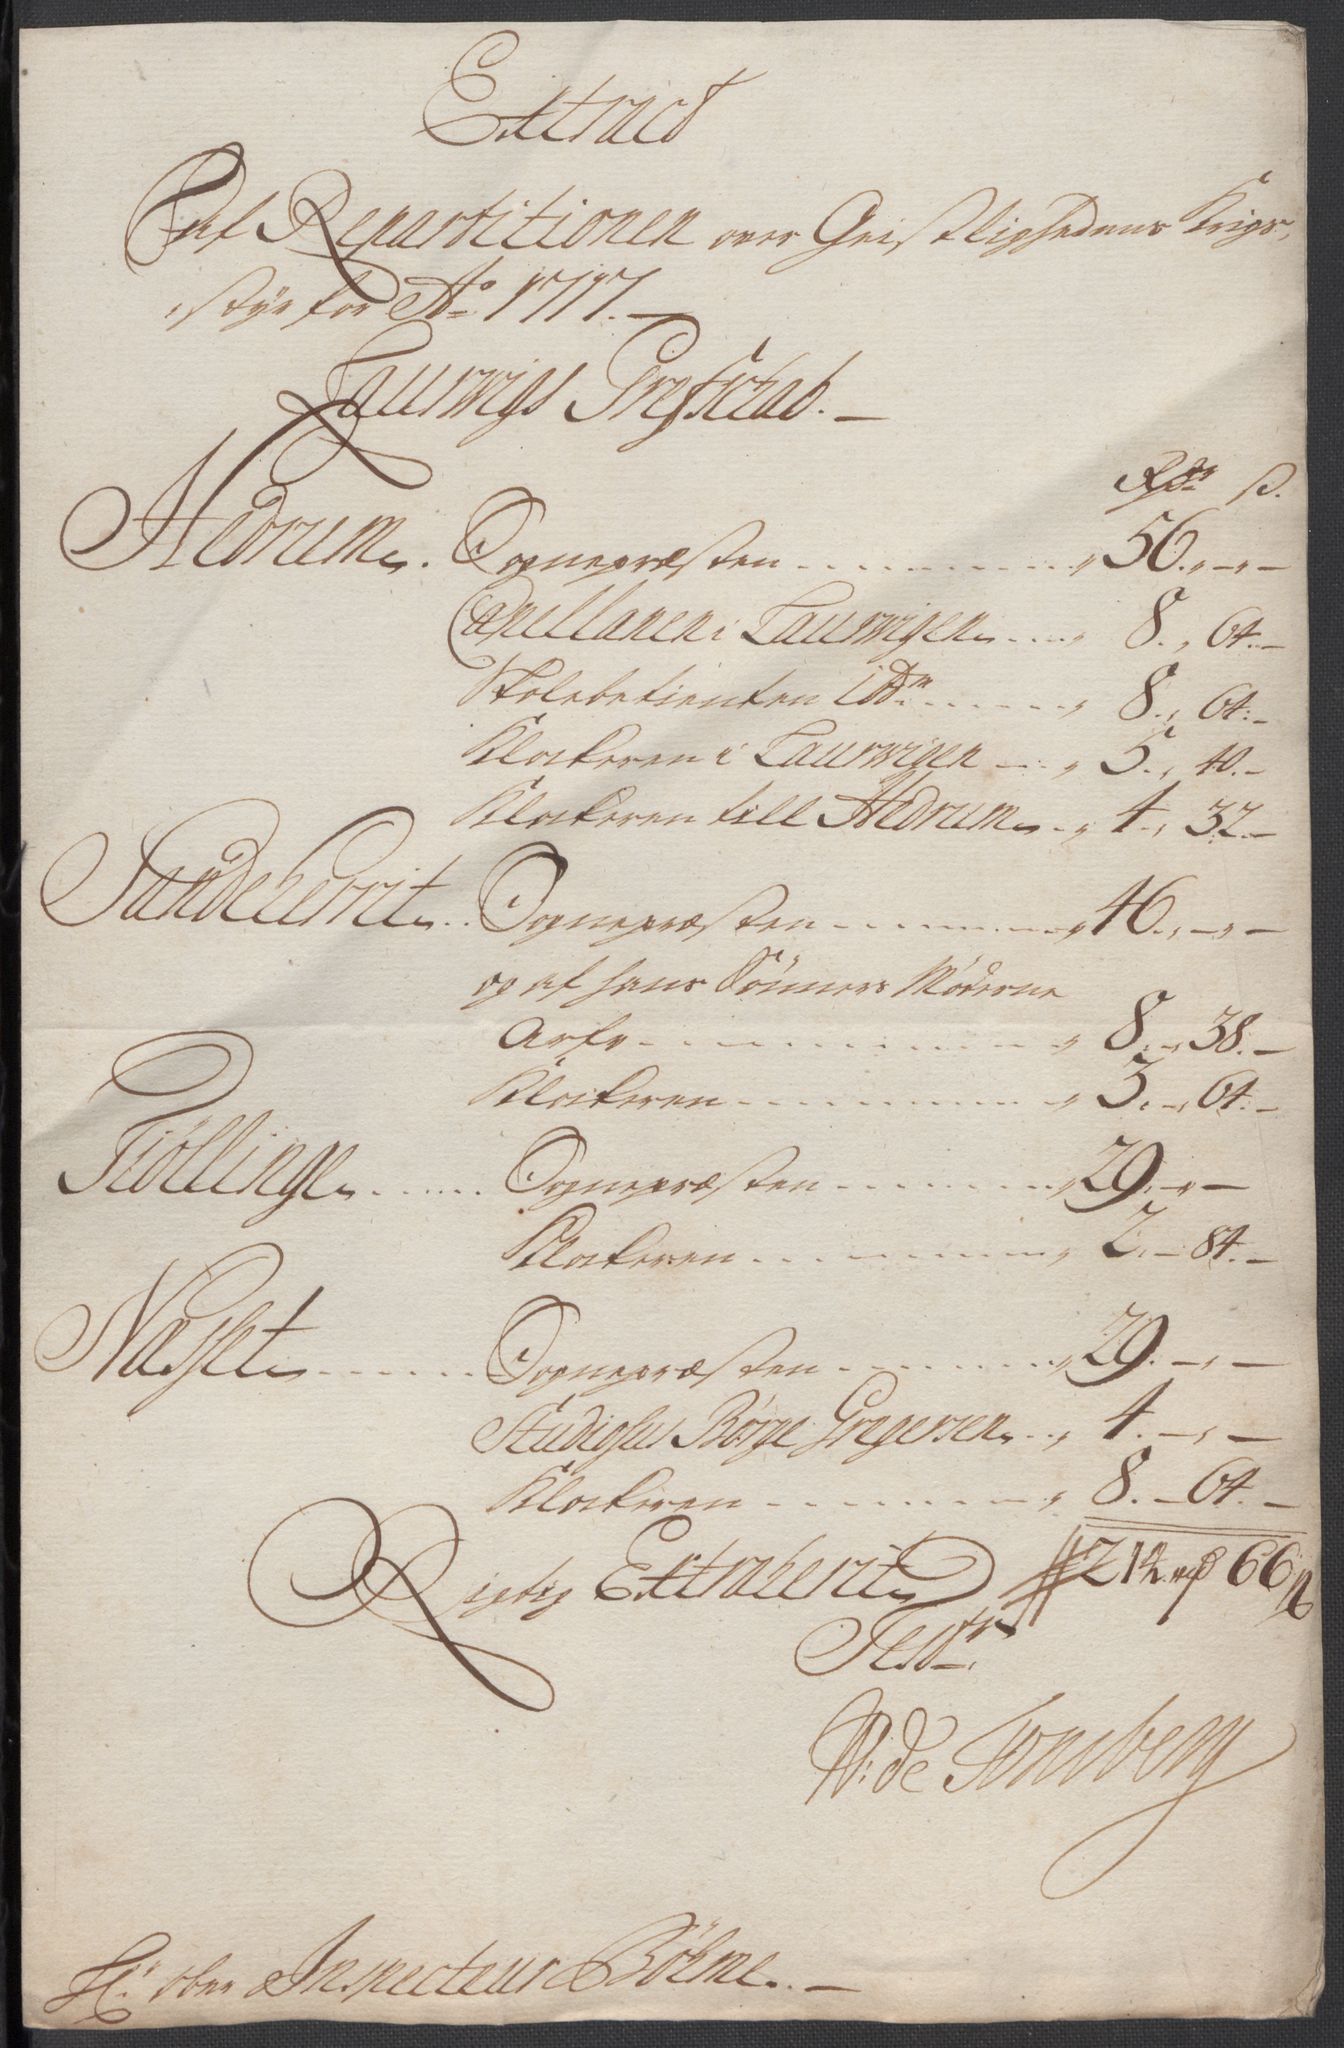 Extract
af Repartitionen over Geistlighedens Krigs,
styr for Ao 1717.
Laurwigs Grefskab.
Rdr ß.
Hedrum. Sognepræsten 56. - -
Capellanen i Laurwigen 8. 64.
Skolebetienten ibdm 8. 64.
Klockeren i Laurwigen 5. 40.
Klockeren till Hedrum 4. 32.
Sandeherrit Sognepræsten 46. - -
og af hans Sönners Möderne
Arfv 8. 38.
Klockeren 3. 64.
Tiöllinge Sognepræsten 29. -
Klockeren 2. 84.
Næsset Sognepræsten 29. - -
Studiosus Börge Gregersen 4. - -
Klockeren 8. 64.
Rigtig Extraherit 214 rdr 66 ß
Test.
W: de Tonsberg
Hr. ober Inspecteur Böhme.